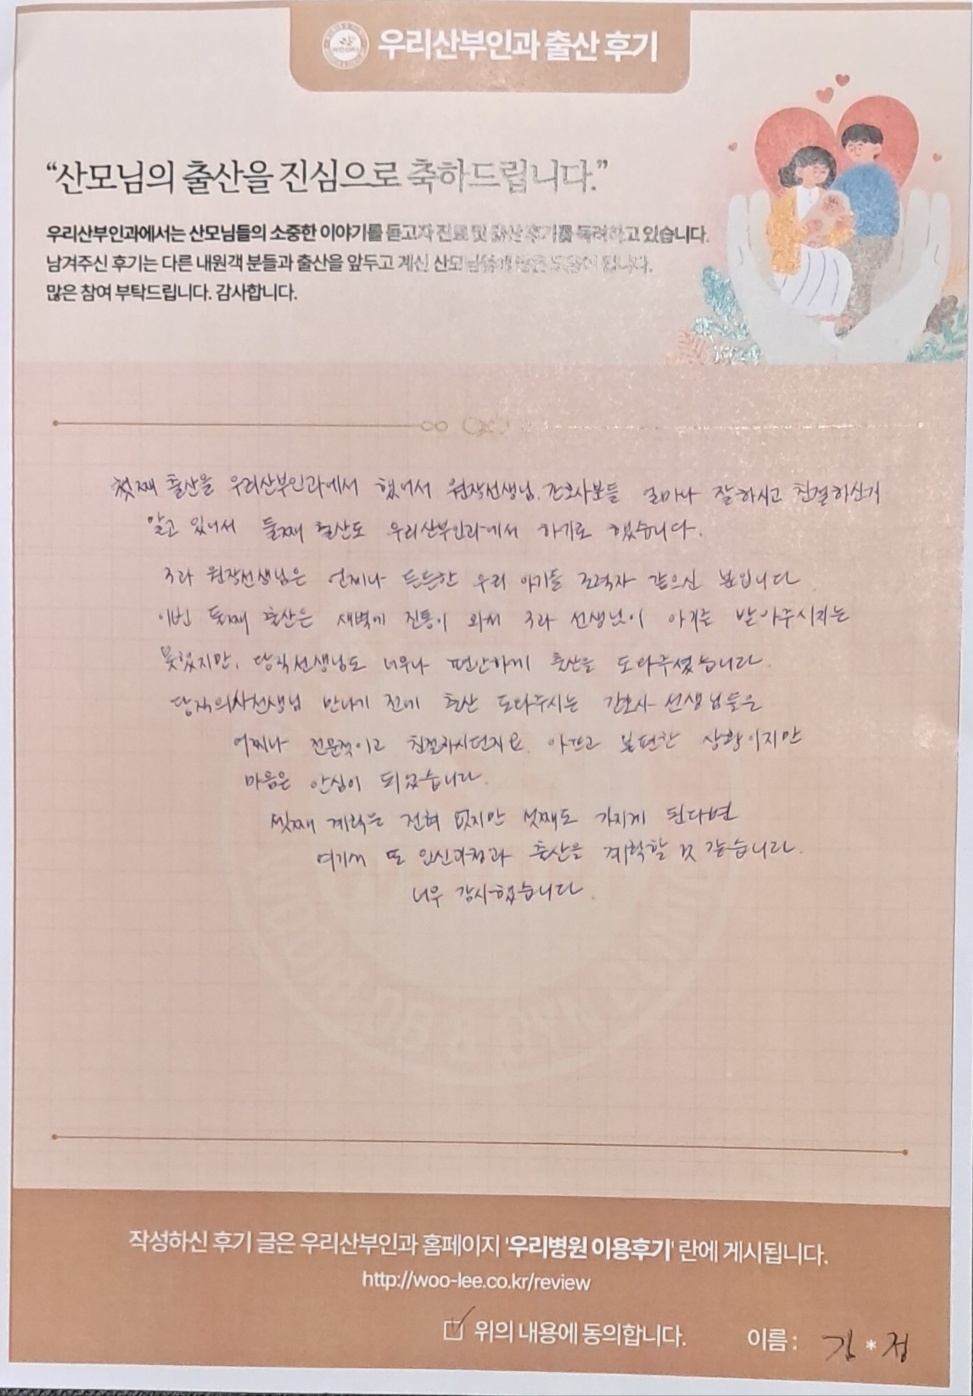 우리산부인과 출산 후기
“산모님의 출산을 진심으로 축하드립니다.”
우리산부인과에서는 산모님들의 소중한 이야기를 듣고자 진료 및 출산 후기를 독려하고 있습니다.
남겨주신 후기는 다른 내원객 분들과 출산을 앞두고 계신 산모님들에게 많은 도움이 됩니다.
많은 참여 부탁드립니다. 감사합니다.
첫째 출산을 우리산부인과에서 했어서 원장선생님, 간호사분들 얼마나 잘하시고 친절하신지
알고 있어서 둘째 출산도 우리산부인과에서 하기로 했습니다.
3과 원장선생님은 언제나 든든한 우리 아기들 조력자 같으신 분입니다
이번 둘째 출산은 새벽에 진통이 와서 3과 선생님이 아기를 받아주시지는
못했지만, 당직선생님도 너무나 편안하게 출산을 도와주셨습니다.
당직의사선생님 만나기 전에 출산 도와주시는 간호사 선생님들은
어찌나 전문적이고 친절하시던지요. 아프고 불편한 상황이지만
마음은 안심이 되었습니다.
셋째 계획은 전혀 없지만 셋째도 가지게 된다면
여기서 또 임신과정과 출산을 계획할 것 같습니다.
너무 감사했습니다.
작성하신 후기 글은 우리산부인과 홈페이지 '우리병원 이용후기' 란에 게시됩니다.
http://woo-lee.co.kr/review
위의 내용에 동의합니다. 이름 : 김 * 정